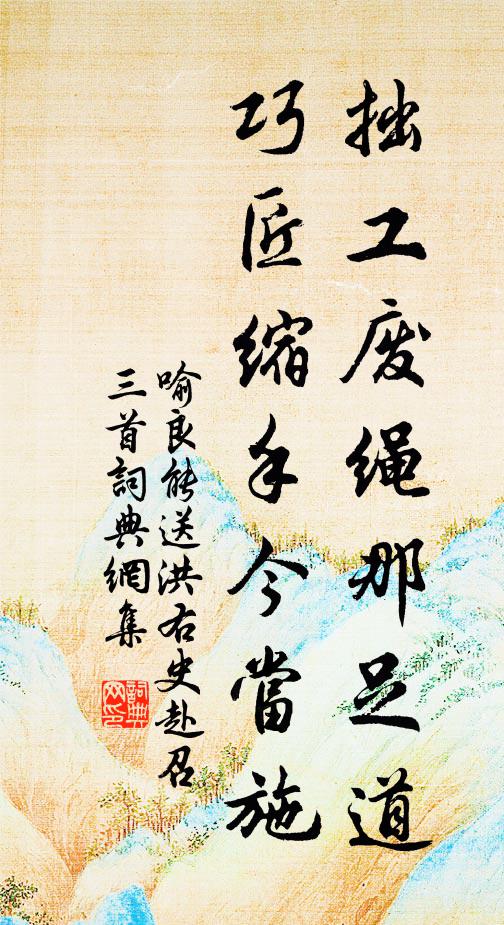 拙工废绳那足道
巧匠缩手今當施
喻良能送洪右史赴召
三首詞典網集
詞典
网印